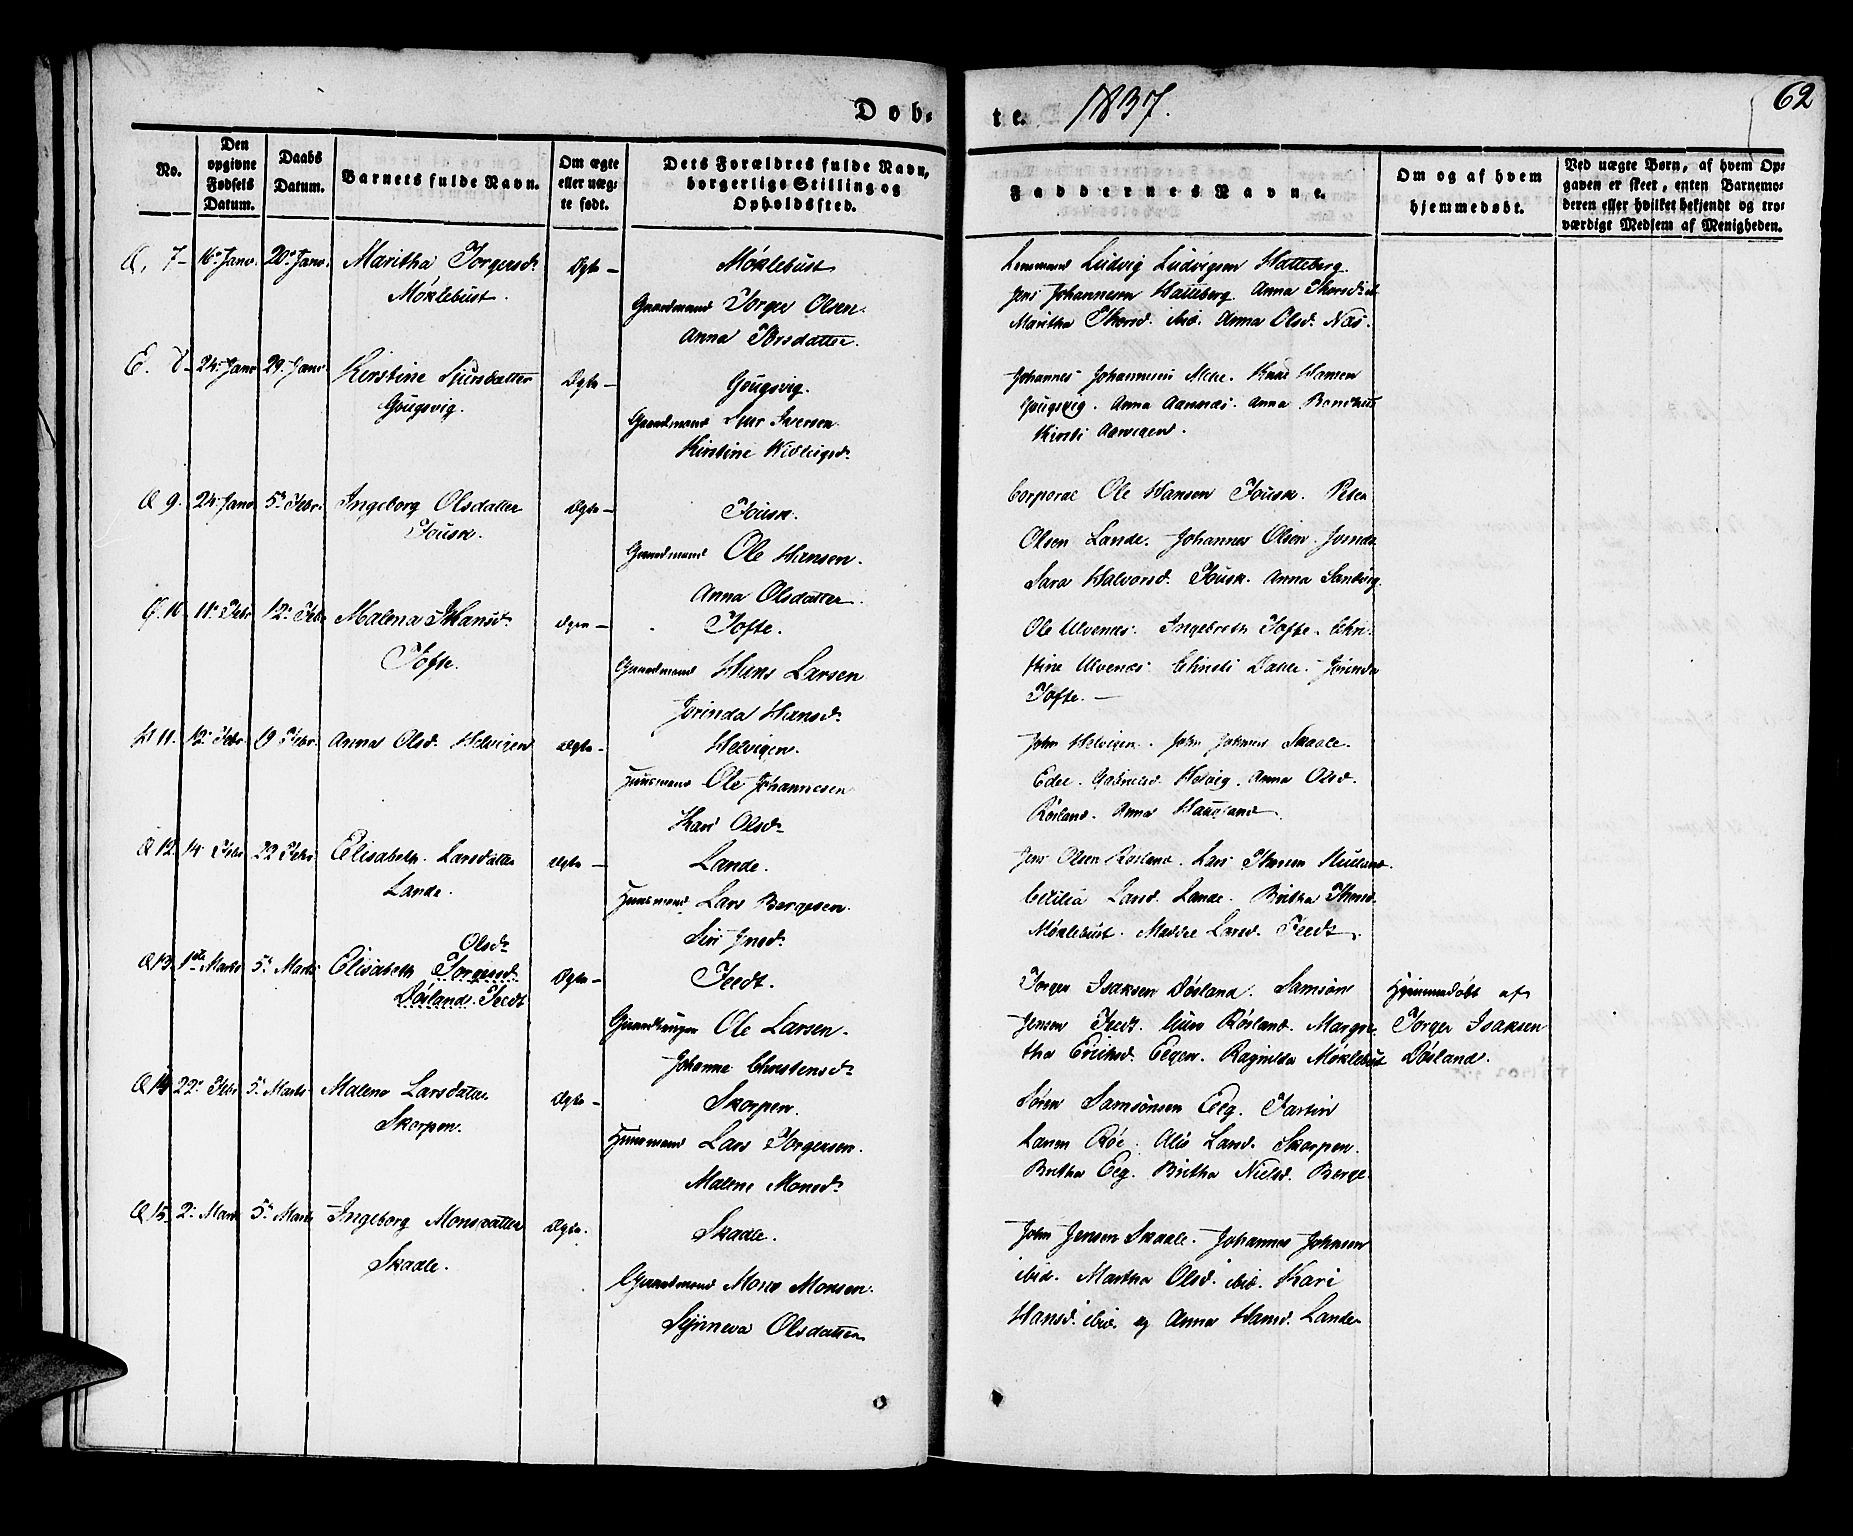 Døb-
te. 1837.
62
No.
Den opgivne Fødsels Datum.
Daabs Datum.
Barnets fulde Navn.
Om ægte eller uæg-te født.
Dets Forældres fulde Navn, borgerlige Stilling og Opholdssted.
Faddernes Navne.
Om og af hvem hjemmedøbt.
Ved uægte Børn, af hvem Op-gaven er skeet, enten Barnemo-deren eller hvilket bekjendt og tro-værdigt Medlem af Menigheden.
7 16 Janv. 20 Janv. Maritha Torgersd. Ægte Møklebust
Møklebust.
Gaardmand Torger Olsen.
Anna Torsdatter
Ludvig Ludvigsen Hatteberg
Jens Johannesen Hatteberg. Anna
Maritha ibid. Anna Olsd. Næs.
8 24 Janv 29. Janv Kirstine Siursdatter Ægte Gougsvig.
Gougsvig.
Gaardmand Siur Iversen
Kirstine
Johannes Johannesen
Gougsvig. Anna Aannæs. Anna
Kirsti
9. 24 Janv 5 Febr. Ingeborg Olsdatter Ægte Tousk.
Tousk.
Gaardmand Ole Hansen.
Anna Olsdatter.
Corporal Ole Hansen Tousk. Peter
Olsen Lande. Johannes Olsen
Sara Halvorsd. Tousk. Anna Sandvig.
10. 11 Febr 12 Febr Malena Hansd. Ægte Tofte.
Tofte.
Gaardmand Hans Larsen
Jorinda Hansd.
Ole Ulvenæs. Ingebreth Tofte. Chri-
stine Ulvenæs. Christi Jorinda
Tofte.
11. 12 Febr 19 Febr. Anna Olsd. Helvigen Ægte Helvigen.
Huusmand Ole Johannesen
Kari Olsd.
John Helvigen. John Johnsen Skaale.
Gabrielsd. Helvig. Anna Olsd.
Røsland. Anna Haugland
12. 14 Febr 22 Febr Elisabeth Larsdatter Ægte Lande.
Lande.
Huusmand Lars Børgesen.
Siri
Jens Olsen Røsland. Lars
Cicilia Larsd. Lande. Britha
Møklebust. Larsd. Teedt.
Olsd.
13. 1ste Marts 5 Marts Elisabeth Torgersd. Ægte Teedt.
Døsland. Teedt
Gaardbruger Ole Larsen.
Johanne Christensd.
Torger Isaksen Døsland. Samson
Jensen Teedt. Guro Røsland. Margre-
tha Eriksd. Eegen. Ragnilda Møklebust
Hjemmedøbt af
Torger Isaksen
Døsland.
14 22 Febr 5 Marts Malene Larsdatter Ægte Skorpen.
Skorpen.
Huusmand Lars Torgersen.
Malene Monsd.
Søren Samsonsen Eeg. Torbin
Larsen Røe. Larsd. Skorpen.
Britha Eeg. Britha Nielsd. Berge
15. 2. Marts 5 Marts Ingeborg Monsdatter Ægte. Skaale.
Skaale.
Gaardmand Mons Monsen.
Synneva Olsdatter
John Jensen Skaale. Johannes Johnsen
ibid. Martha Olsd. ibid. Kari
Hansd. ibid. og Anna Hansd. Lande